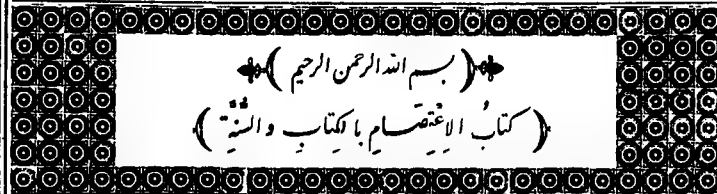 ﴿ بسم الله الرحمن الرحيم ﴾
﴿ كتابُ الاِعْتِصَامِ بالكِتابِ والسُّنَّةِ ﴾